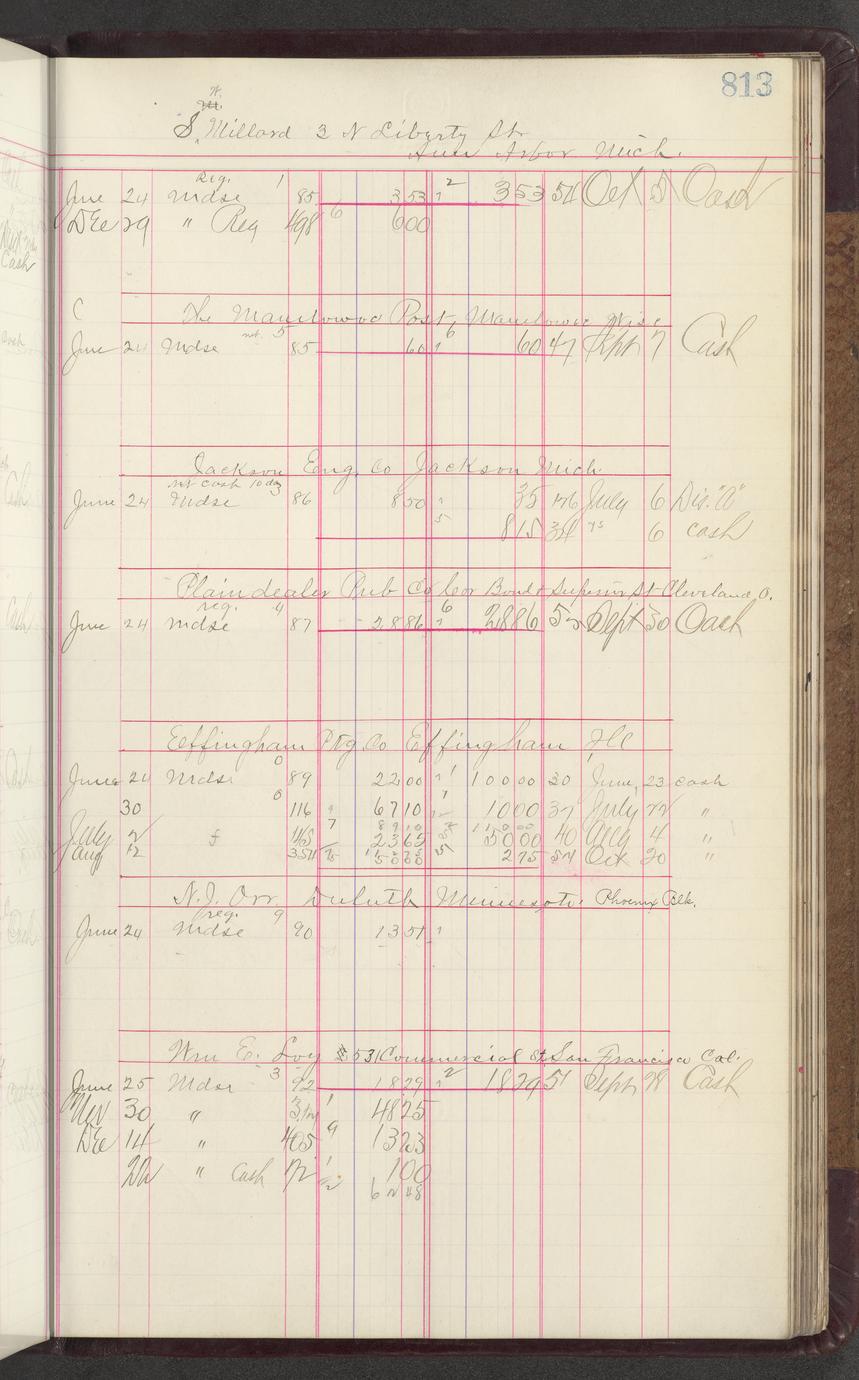 813
W.
S. Millard 3 N Liberty St
Ann Arbor Mich.
Reg. 1
June 24 Mdse 85 353 2 353 51 Oct 5 Cash
Dec 29 " Reg 498 6 600
C The Manitowoc Post, Manitowoc Wisc
net. 5 6
June 24 Mdse 85 60 60 47 Sept 7 Cash
Jackson Eng. Co Jackson Mich.
net cash 10 dy 3
June 24 Mdse 86 850 35 46 July 6 Dis. "A"
5 815 34 " 6 cash
Plaindealer Pub Co Cor Bond & Superior St Cleveland, O.
reg. 4 6
June 24 Mdse 87 2886 2886 53 Sept 30 Cash
Effingham Ptg Co Effingham Ill
0
June 24 Mdse 89 2200 1 10000 30 June 23 cash
0
30 116 6710 1 1000 37 July 22 "
7 8910 11000
July 2 2365 5000 40 Aug 4 "
Aug 12 354 5000 275 54 Oct 20 "
N.J. Orr. Duluth Minnesota Phoenix Blk.
reg. 9
June 24 Mdse 90 1351
Wm E. Loy 531 Commercial St San Francisco Cal.
June 25 Mdse 3 92 1829 2 1829 51 Sept 28 Cash
Nov 30 " 1 4825
Dec 14 " 405 9 1323
22 " Cash 172 1 100
6248